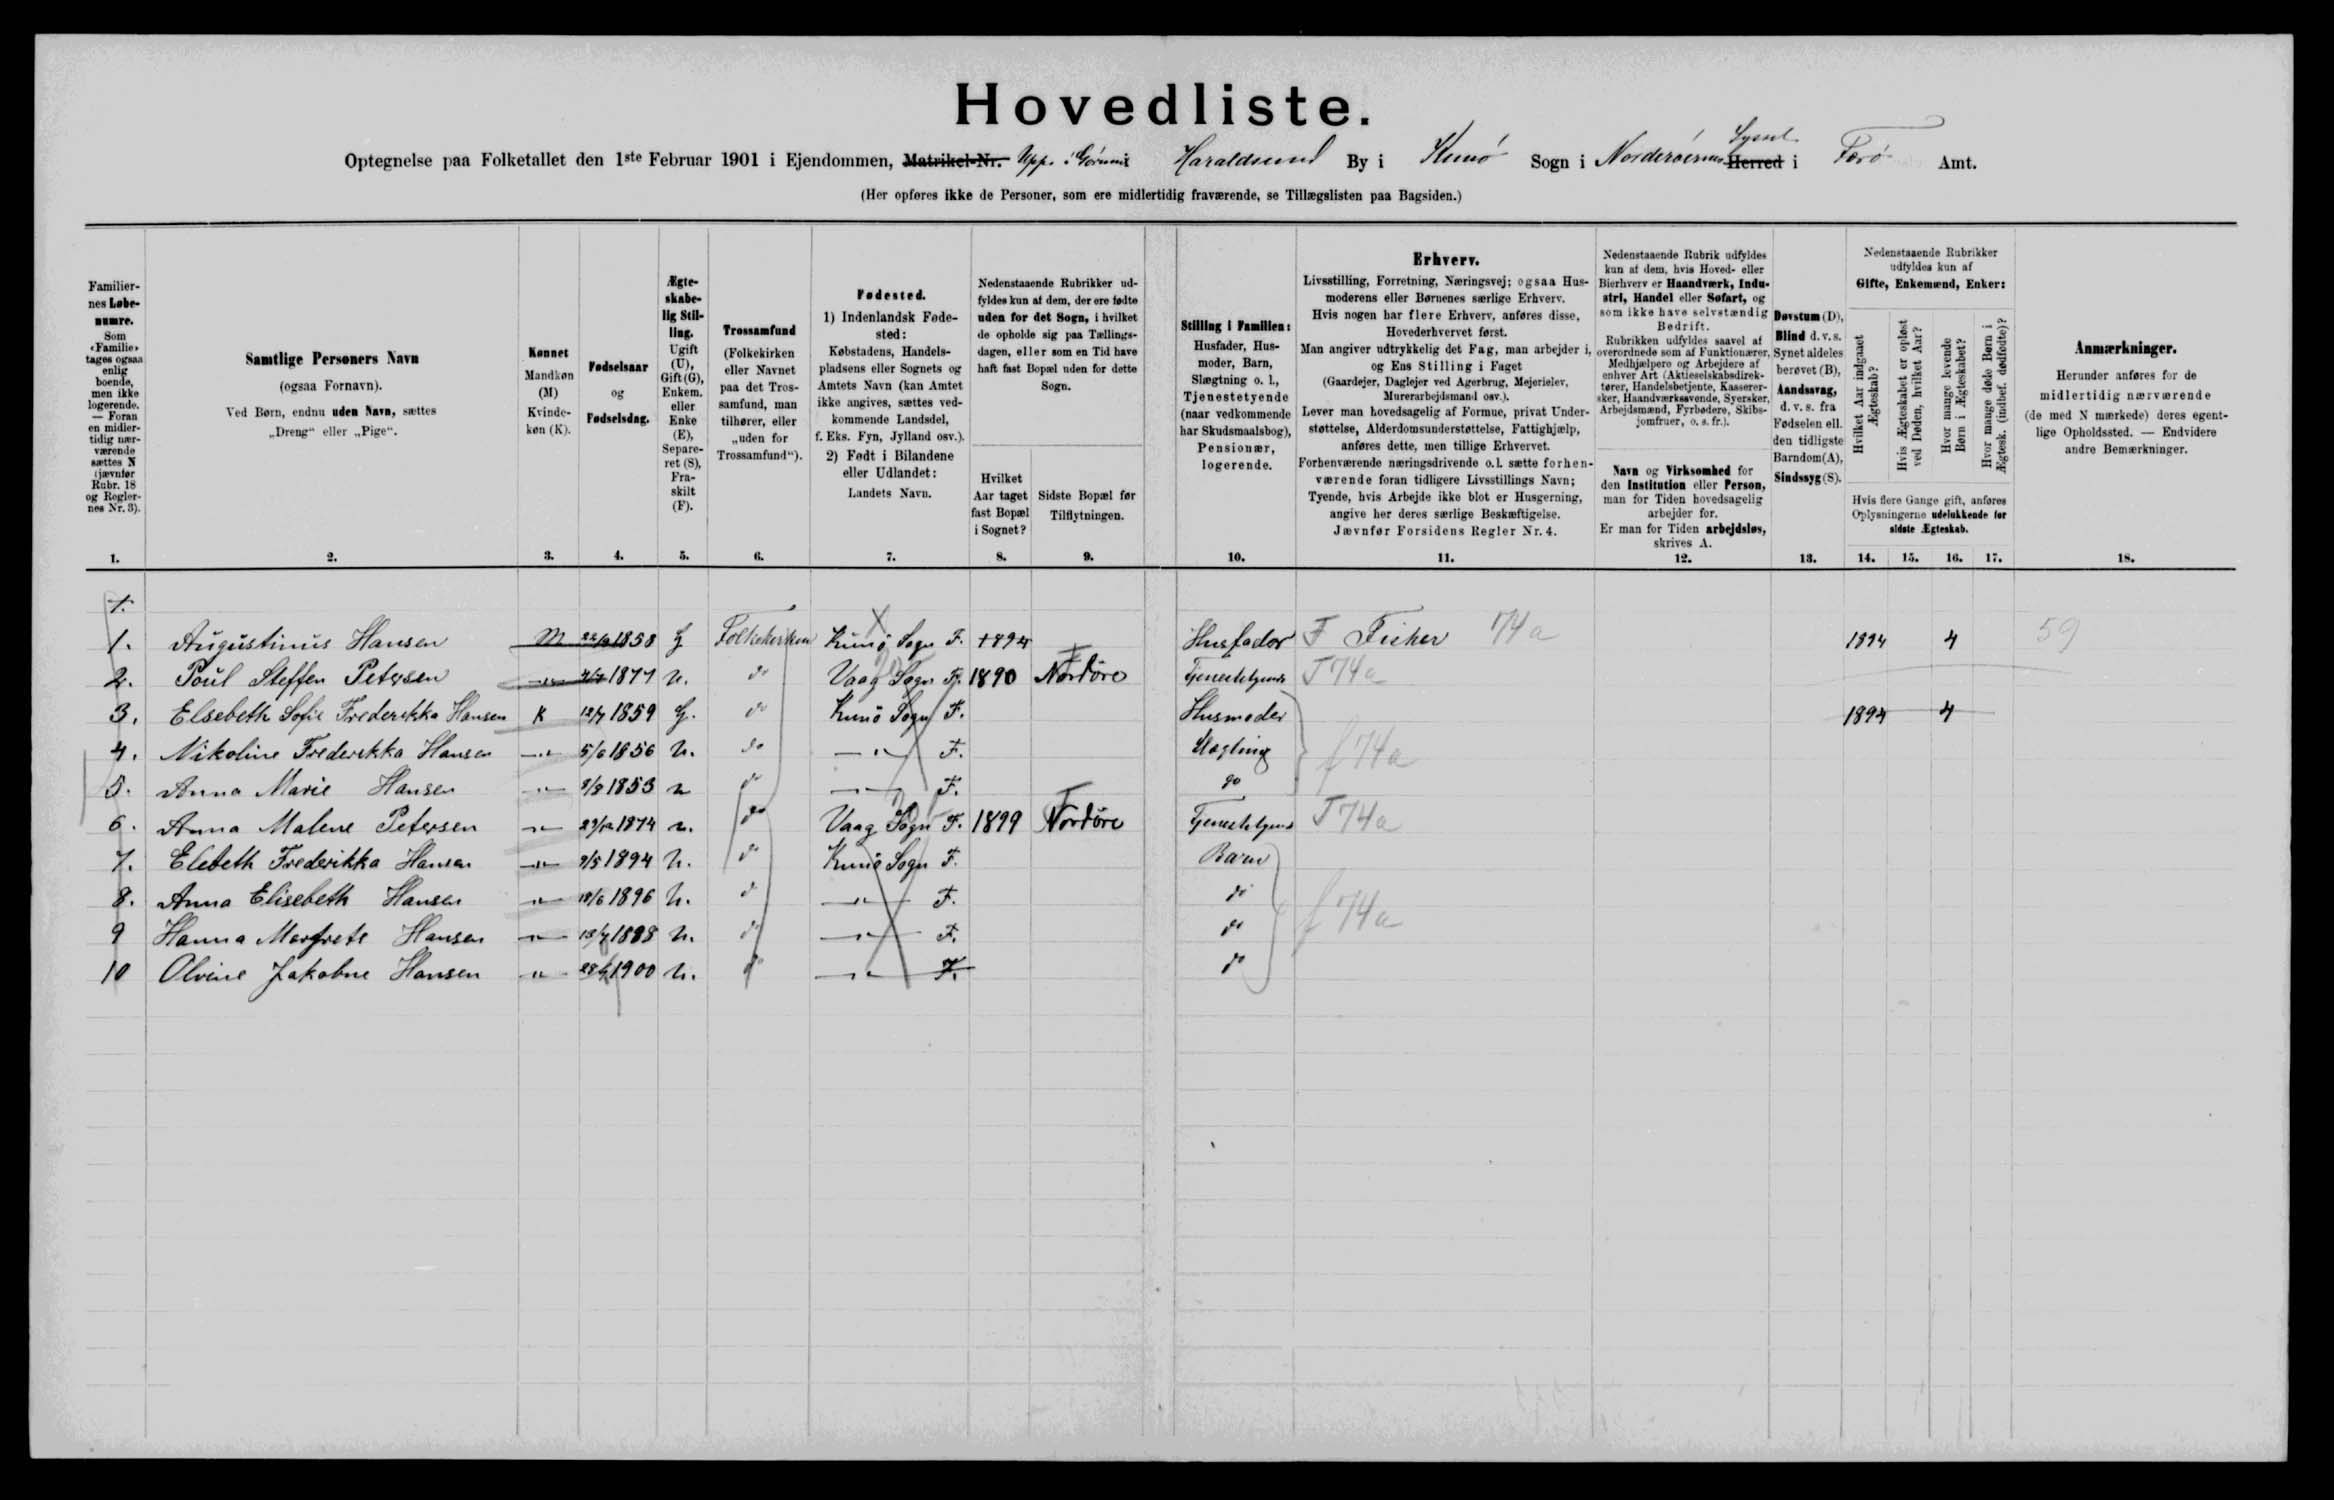 Hovedliste.
Optegnelse paa Folketallet den 1ste Februar 1901 i Ejendommen, Matrikel-Nr. Upp. i Haraldsund By i Kunø Sogn i Norderøernes Herred Syssel i Færø Amt.
(Her opføres ikke de Personer, som ere midlertidig fraværende, se Tillægslisten paa Bagsiden.)
Familiernes Løbenumre. Som «Familie» tages ogsaa enlig boende, men ikke logerende. — Foran en midlertidig nærværende sættes N (jævnfør Rubr. 18 og Reglernes Nr. 3).
Samtlige Personers Navn (ogsaa Fornavn). Ved Børn, endnu uden Navn, sættes „Dreng“ eller „Pige“.
Kønnet Mandkøn (M) Kvindekøn (K).
Fødselsaar og Fødselsdag.
Ægteskabelig Stilling. Ugift (U), Gift (G), Enkem. eller Enke (E), Separeret (S), Fraskilt (F).
Trossamfund (Folkekirken eller Navnet paa det Trossamfund, man tilhører, eller „uden for Trossamfund“).
Fødested. 1) Indenlandsk Fødested: Købstadens, Handelspladsens eller Sognets og Amtets Navn (kan Amtet ikke angives, sættes vedkommende Landsdel, f. Eks. Fyn, Jylland osv.). 2) Født i Bilandene eller Udlandet: Landets Navn.
Nedenstaaende Rubrikker udfyldes kun af dem, der ere fødte uden for det Sogn, i hvilket de opholde sig paa Tællingsdagen, eller som en Tid have haft fast Bopæl uden for dette Sogn.
Hvilket Aar taget fast Bopæl i Sognet?
Sidste Bopæl før Tilflytningen.
Stilling i Familien: Husfader, Husmoder, Barn, Slægtning o. l., Tjenestetyende (naar vedkommende har Skudsmaalsbog), Pensionær, logerende.
Erhverv.
Livsstilling, Forretning, Næringsvej; ogsaa Husmoderens eller Børnenes særlige Erhverv.
Hvis nogen har flere Erhverv, anføres disse, Hovederhvervet først.
Man angiver udtrykkelig det Fag, man arbejder i, og Ens Stilling i Faget
(Gaardejer, Daglejer ved Agerbrug, Mejerielev, Murerarbejdsmand osv.).
Lever man hovedsagelig af Formue, privat Understøttelse, Alderdomsunderstøttelse, Fattighjælp, anføres dette, men tillige Erhvervet.
Forhenværende næringsdrivende o.l. sætte forhenværende foran tidligere Livsstillings Navn;
Tyende, hvis Arbejde ikke blot er Husgerning, angive her deres særlige Beskæftigelse.
Jævnfør Forsidens Regler Nr. 4.
Nedenstaaende Rubrik udfyldes kun af dem, hvis Hoved- eller Bierhverv er Haandværk, Industri, Handel eller Søfart, og som ikke have selvstændig Bedrift.
Rubrikken udfyldes saavel af overordnede som af Funktionærer, Medhjælpere og Arbejdere af enhver Art (Aktieselskabsdirektører, Handelsbetjente, Kasserersker, Haandværkssvende, Syersker, Arbejdsmænd, Fyrbødere, Skibsjomfruer, o. s. fr.).
Navn og Virksomhed for den Institution eller Person, man for Tiden hovedsagelig arbejder for.
Er man for Tiden arbejdsløs, skrives A.
Døvstum (D), Blind d. v. s. Synet aldeles berøvet (B), Aandssvag, d. v. s. fra Fødselen ell. den tidligste Barndom (A), Sindssyg (S).
Nedenstaaende Rubrikker udfyldes kun af Gifte, Enkemænd, Enker:
Hvilket Aar indgaaet Ægteskab?
Hvis Ægteskabet er opløst ved Døden, hvilket Aar?
Hvor mange levende Børn i Ægteskabet?
Hvor mange døde Børn i Ægtesk. (indbef. dødfødte)?
Hvis flere Gange gift, anføres Oplysningerne udelukkende for sidste Ægteskab.
Anmærkninger. Herunder anføres for de midlertidig nærværende (de med N mærkede) deres egentlige Opholdssted. — Endvidere andre Bemærkninger.
1. 2. 3. 4. 5. 6. 7. 8. 9. 10. 11. 12. 13. 14. 15. 16. 17. 18.
1. Augustinus Hansen M 1858 G Folkekirken Kunø Sogn F. 1894 Husfader F Fisker 74a 1894 4 59
2. Poul Steffen Petersen -"- 1877 U. do Vaag Sogn F. 1890 Nordöre Tjenestetyende T 74a
3. Elsebeth Sofie Frederikka Hansen K 12/7 1859 G. do Kunø Sogn F. Husmoder 1894 4
4. Nikoline Frederikka Hansen -"- 5/6 1856 U. do -"- F. Slægtning f 74a
5. Anna Marie Hansen -"- 9/8 1853 U do -"- F. do
6. Anna Malene Petersen -"- 29/12 1874 U. do Vaag Sogn F. 1899 Nordöre Tjenestetyende T 74a
7. Elsbeth Frederikka Hansen -"- 9/5 1894 U. do Kunø Sogn F. Barn
8. Anna Elisebeth Hansen -"- 18/6 1896 U. do -"- F. do f 74a
9 Hanna Margrete Hansen -"- 13/7 1898 U. do -"- F. do
10 Olvine Jakobine Hansen -"- 1900 U. do -"- F. do